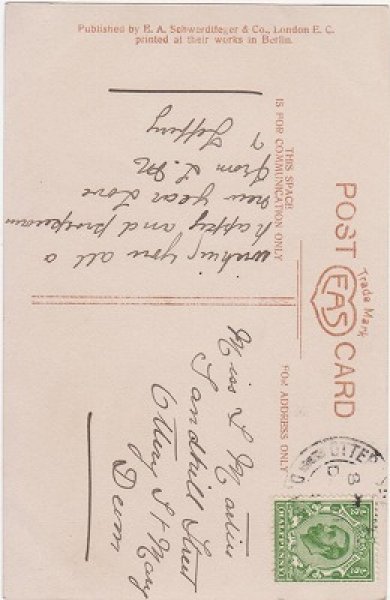 Published by E. A. Schwerdtfeger & Co., London E. C.
printed at their works in Berlin.
POST CARD
EAS
Trade Mark
THIS SPACE
IS FOR COMMUNICATION ONLY
wishing you all a
happy and
new year Love
from L. M
Jeffery
FOR ADDRESS ONLY
Miss L Martin
Sandhill Street
Ottery St Mary
Devon
HALFPENNY